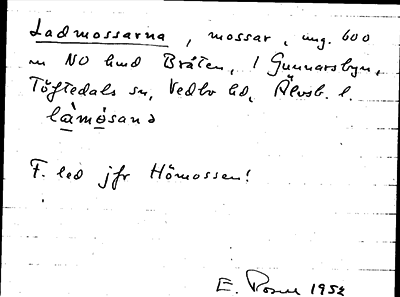 Ladmossarna, mossar, ung. 600
m NO hmd Bråten, 1 Gunnarsbyn,
Töftedals sn, Vedbo hd, Älvsb. l.
làmósana
F. led jfr Hömossen!
E. 1952